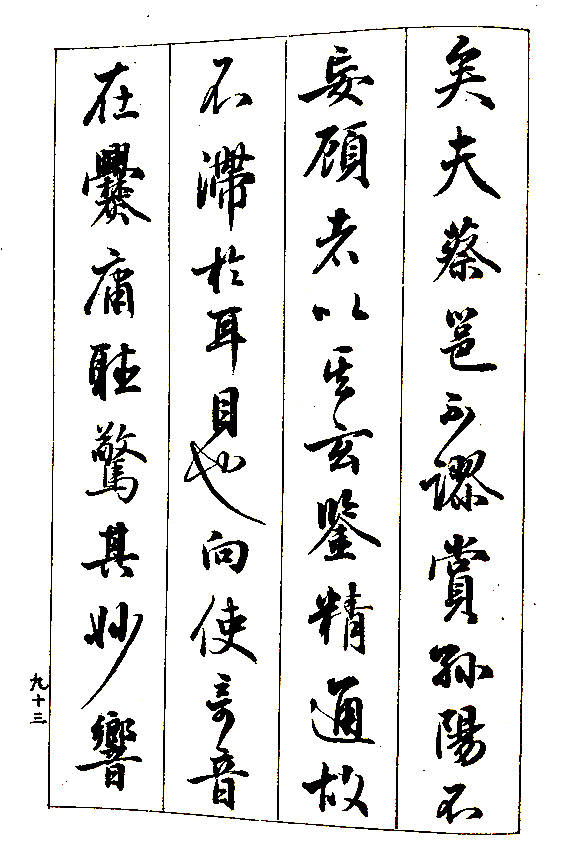 矣夫蔡邕不謬賞孫陽不
妄顧者以其玄鑒精通故
不滯於耳目也向使奇音
在爨庸聽驚其妙響
九十三